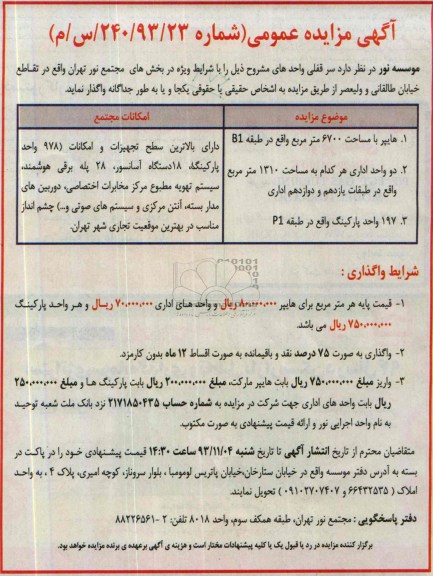 آگهی مزایده عمومی(شماره ۲۴۰/۹۳/۲۳/س/م)
موسسه نور در نظر دارد سر قفلی واحد های مشروح ذیل را با شرایط ویژه در بخش های مجتمع نور تهران واقع در تقاطع
خیابان طالقانی و ولیعصر از طریق مزایده به اشخاص حقیقی یا حقوقی یکجا و یا به طور جداگانه واگذار نماید.
موضوع مزایده
۱. هایپر با مساحت ۶۷۰۰ متر مربع واقع در طبقه B1
۲. دو واحد اداری هر کدام به مساحت ۱۳۱۰ متر مربع
واقع در طبقات یازدهم و دوازدهم اداری
۳. ۱۹۷ واحد پارکینگ واقع در طبقه P1
امکانات مجتمع
دارای بالاترین سطح تجهیزات و امکانات (۹۷۸ واحد
پارکینگ، ۱۸دستگاه آسانسور، ۲۸ پله برقی هوشمند،
سیستم تهویه مطبوع مرکز مخابرات اختصاصی، دوربین های
مدار بسته، آنتن مرکزی و سیستم های صوتی و...) چشم انداز
مناسب در بهترین موقعیت تجاری شهر تهران.
شرایط واگذاری :
۱- قیمت پایه هر متر مربع برای هایپر ۸۰,۰۰۰,۰۰۰ ریال و واحد های اداری ۷۰,۰۰۰,۰۰۰ ریال و هر واحد پارکینگ
۷۵۰,۰۰۰,۰۰۰ ریال می باشد.
۲- واگذاری به صورت ۷۵ درصد نقد و باقیمانده به صورت اقساط ۱۲ ماه بدون کارمزد.
۳- واریز مبلغ ۷۵۰,۰۰۰,۰۰۰ ریال بابت هایپر مارکت، مبلغ ۲۰۰,۰۰۰,۰۰۰ ریال بابت پارکینگ ها و مبلغ ۲۵۰,۰۰۰,۰۰۰
ریال بابت واحد های اداری جهت شرکت در مزایده به شماره حساب ۲۱۷۱۸۵۰۴۳۵ نزد بانک ملت شعبه توحید
به نام واحد اجرایی نور و ارائه قیمت پیشنهادی به صورت مکتوب.
متقاضیان محترم از تاریخ انتشار آگهی تا تاریخ شنبه ۹۳/۱۱/۰۴ ساعت ۱۴:۳۰ قیمت پیشنهادی خود را در پاکت در
بسته به آدرس دفتر موسسه واقع در خیابان ستارخان،خیابان پاتریس لومومبا ، بلوار سروناز، کوچه امیری، پلاک ۴ ، به واحد
املاک ( ۶۶۴۳۲۵۳۵ و ۰۹۱۰۲۷۰۷۴۰۷ ) تحویل نمایند.
دفتر پاسخگویی : مجتمع نور تهران، طبقه همکف سوم، واحد ۸۰۱۸ تلفن: ۲ -۸۸۲۲۶۵۶۱
برگزار کننده مزایده در رد یا قبول یک یا کلیه پیشنهادات مختار است و هزینه ی آگهی برعهده ی برنده مزایده خواهد بود.